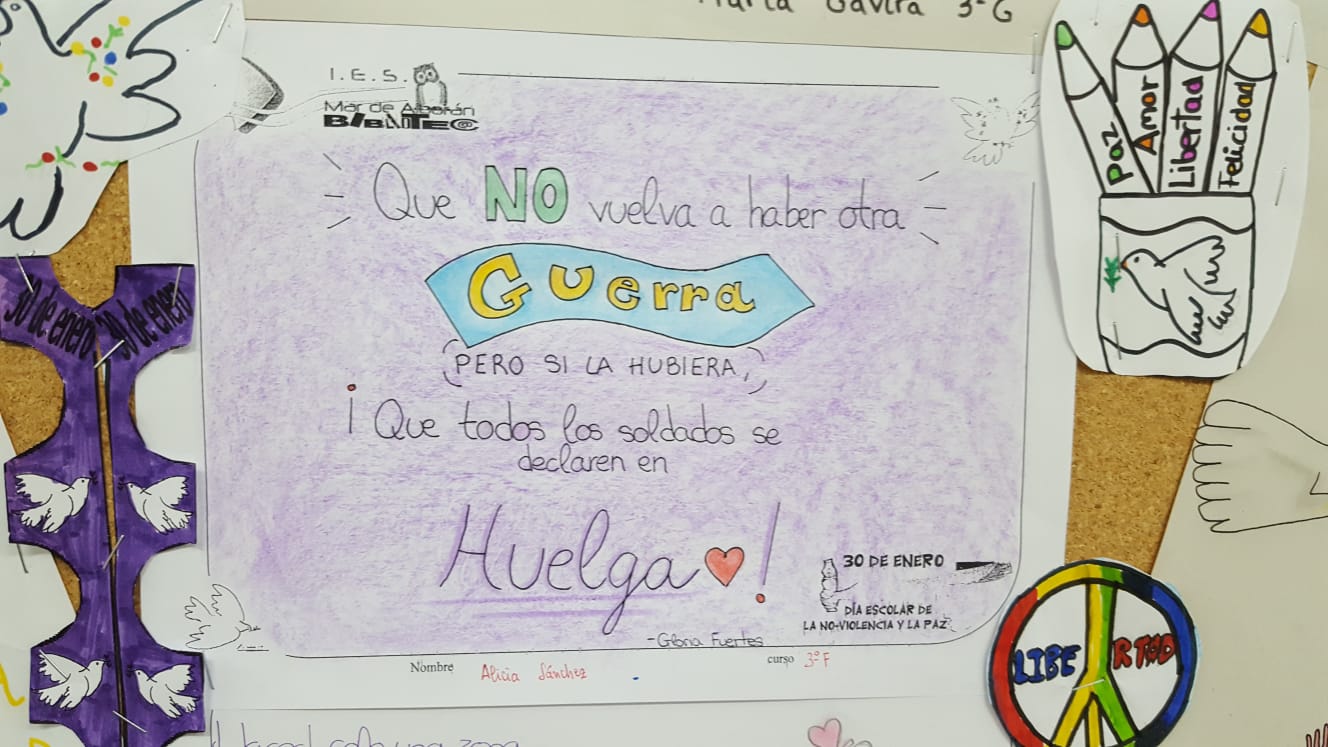 Marta Gavira 3º G
I. E. S.
Mar de Alborán
BIBLIOTEC@
Que NO vuelva a haber otra
Guerra
(PERO SI LA HUBIERA,)
¡Que todos los soldados se
declaren en
Huelga!
- Gloria Fuertes
30 DE ENERO
DÍA ESCOLAR DE
LA NO-VIOLENCIA Y LA PAZ
Nombre Alicia Sánchez curso 3º F
30 de enero
30 de enero
Paz
Amor
Libertad
Felicidad
LIBERTAD